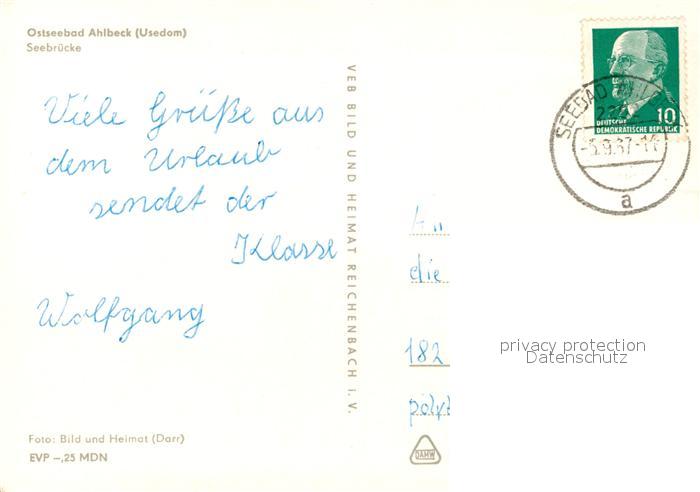 Ostseebad Ahlbeck (Usedom)
Seebrücke
Viele Grüße aus
dem Urlaub
sendet der
Klasse
Wolfgang
Foto: Bild und Heimat (Darr)
EVP –,25 MDN
VEB BILD UND HEIMAT REICHENBACH i. V.
10
DEUTSCHE
DEMOKRATISCHE REPUBLIK
SEEBAD
a
An
die
182
privacy protection
Datenschutz
DAMW